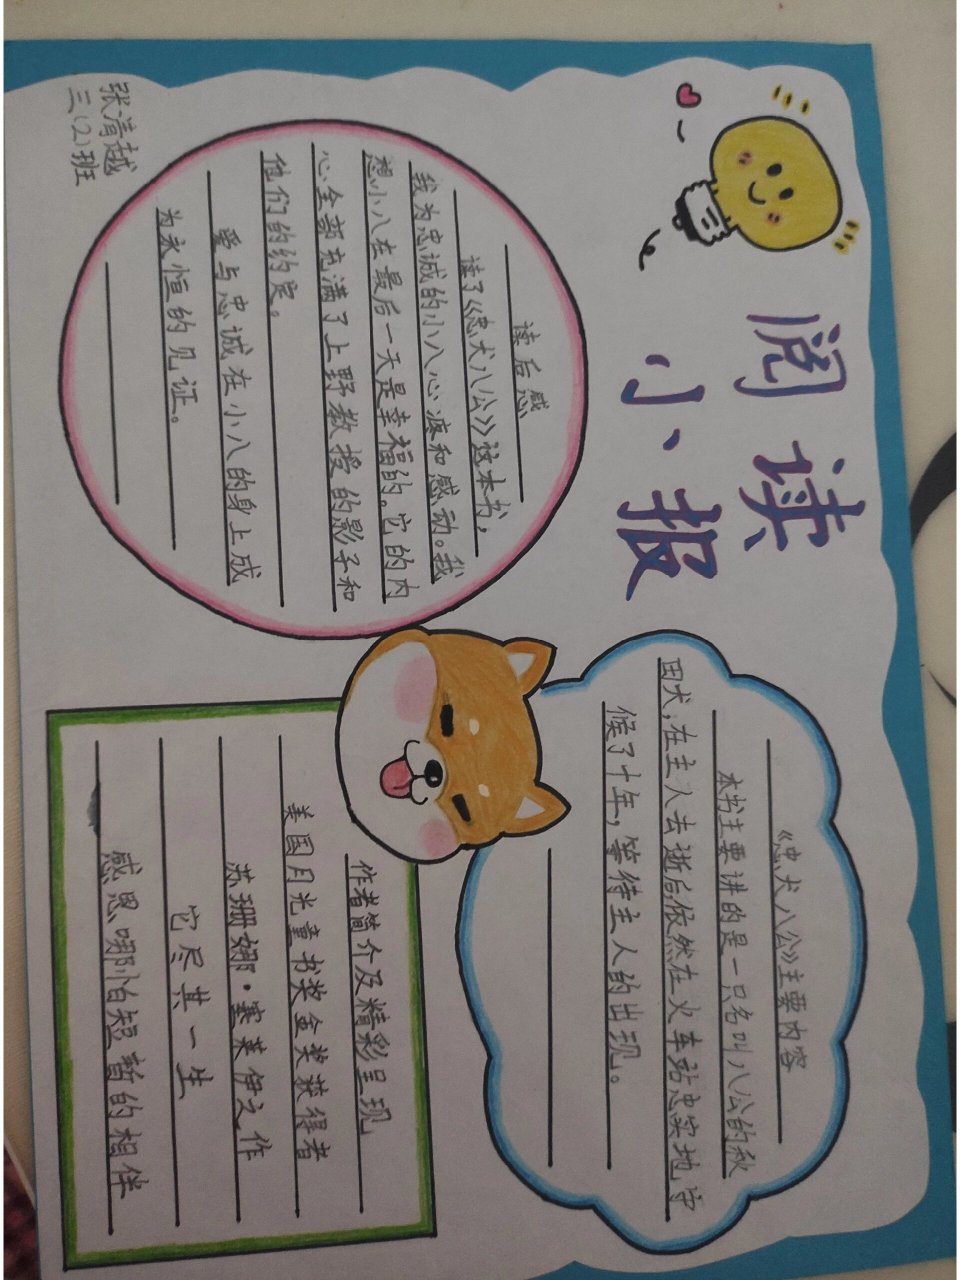 阅读
小报
《忠犬八公》主要内容
本书主要讲的是一只名叫八公的秋
田犬，在主人去逝后，依然在火车站忠实地守
候了十年，等待主人的出现。
读后感
读了《忠犬八公》这本书，
我为忠诚的小八心疼和感动。我
想小八在最后一天是幸福的。它的内
心全部充满了上野教授的影子和
他们的约定。
爱与忠诚在小八的身上成
为永恒的见证。
作者简介及精彩呈现
美国月光童书奖金奖获得者
苏珊娜·塞莱伊之作
它尽其一生
感恩哪怕短暂的相伴
张清越
三(2)班